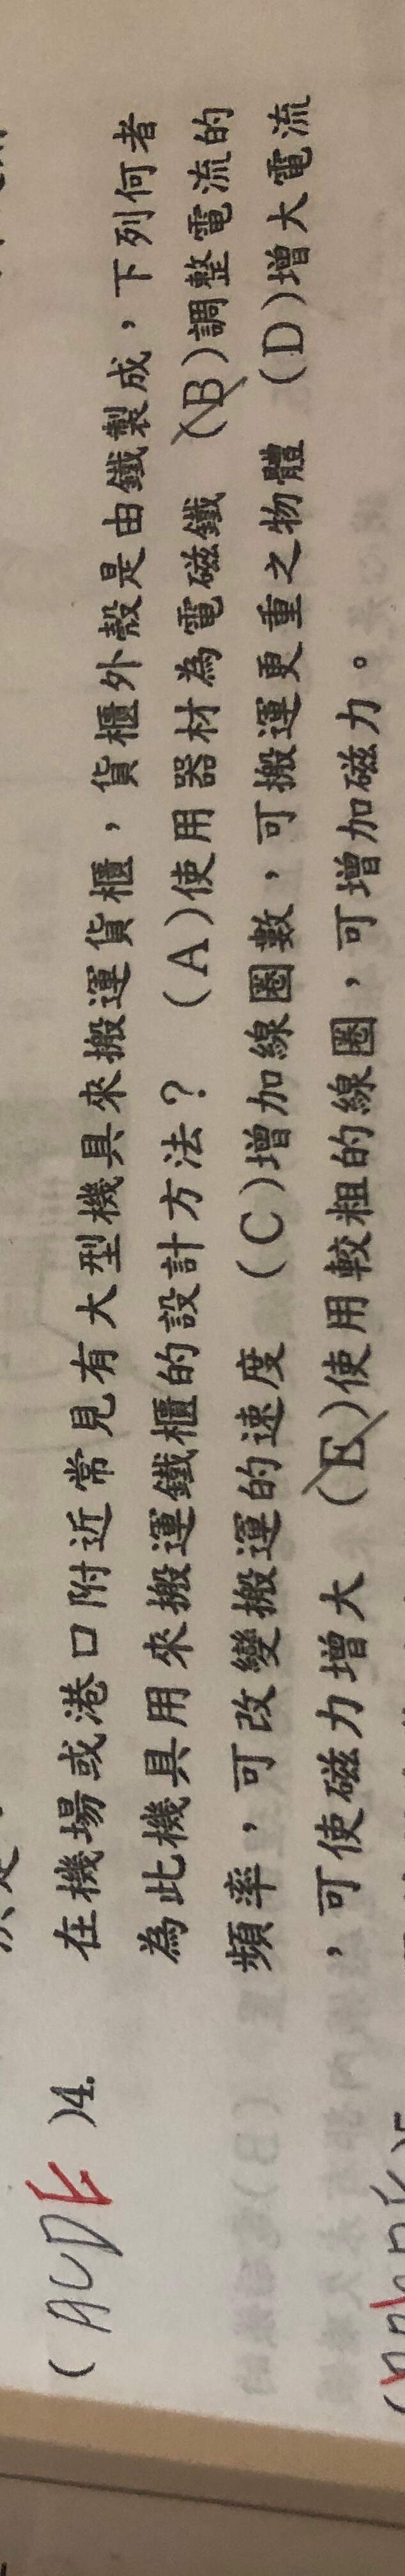 (ACDE)4.在機場或港口附近常見有大型機具來搬運貨櫃，貨櫃外殼是由鐵製成，下列何者
為此機具用來搬運鐵櫃的設計方法？　(A)使用器材為電磁鐵　(B)調整電流的
頻率，可改變搬運的速度　(C)增加線圈數，可搬運更重之物體　(D)增大電流
，可使磁力增大　(E)使用較粗的線圈，可增加磁力。